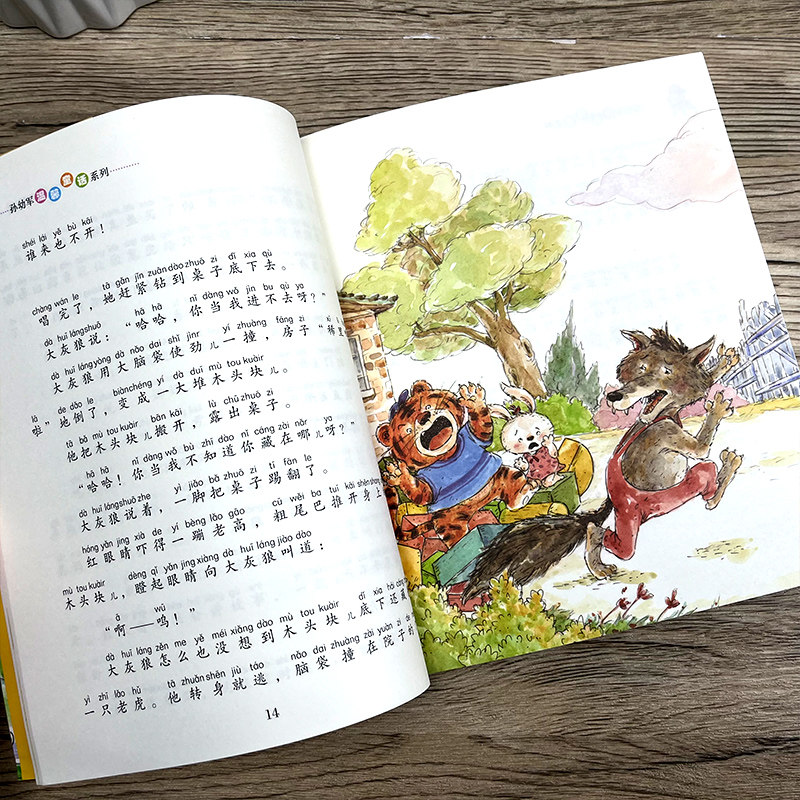 孙幼军 童话系列
shéi lái yě bù kāi
谁来也不开！
chàng wán le tā gǎn jǐn zuān dào zhuō zi dǐ xia qù
唱完了，她赶紧钻到桌子底下去。
dà huī láng shuō hā hā nǐ dàng wǒ jìn bu qù ya
大灰狼说：“哈哈，你当我进不去呀？”
dà huī láng yòng dà nǎo dai shǐ jìnr yí zhuàng fáng zi
大灰狼用大脑袋使劲儿一撞，房子“稀里
lā de dǎo le biàn chéng yí dà duī mù tou kuàir
啦”地倒了，变成一大堆木头块儿。
tā bǎ mù tou kuàir bān kāi lù chū zhuō zi
他把木头块儿搬开，露出桌子。
hā hā nǐ dàng wǒ bù zhī dào nǐ cáng zài nǎr ya
“哈哈！你当我不知道你藏在哪儿呀？”
dà huī láng shuō zhe yì jiǎo bǎ zhuō zi tī fān le
大灰狼说着，一脚把桌子踢翻了。
hóng yǎn jing xià de yí bèng lǎo gāo cū wěi ba tuī kāi shēn shang
红眼睛吓得一蹦老高，粗尾巴推开身上
mù tou kuàir dèng qǐ yǎn jing xiàng dà huī láng jiào dào
木头块儿，瞪起眼睛向大灰狼叫道：
ā wū
“啊——呜！”
dà huī láng zěn me yě méi xiǎng dào mù tou kuàir dǐ xia hái cáng
大灰狼怎么也没想到木头块儿底下还藏
yì zhī lǎo hǔ tā zhuǎn shēn jiù táo nǎo dai zhuàng zài yuàn zi de
一只老虎。他转身就逃，脑袋撞在院子的
14